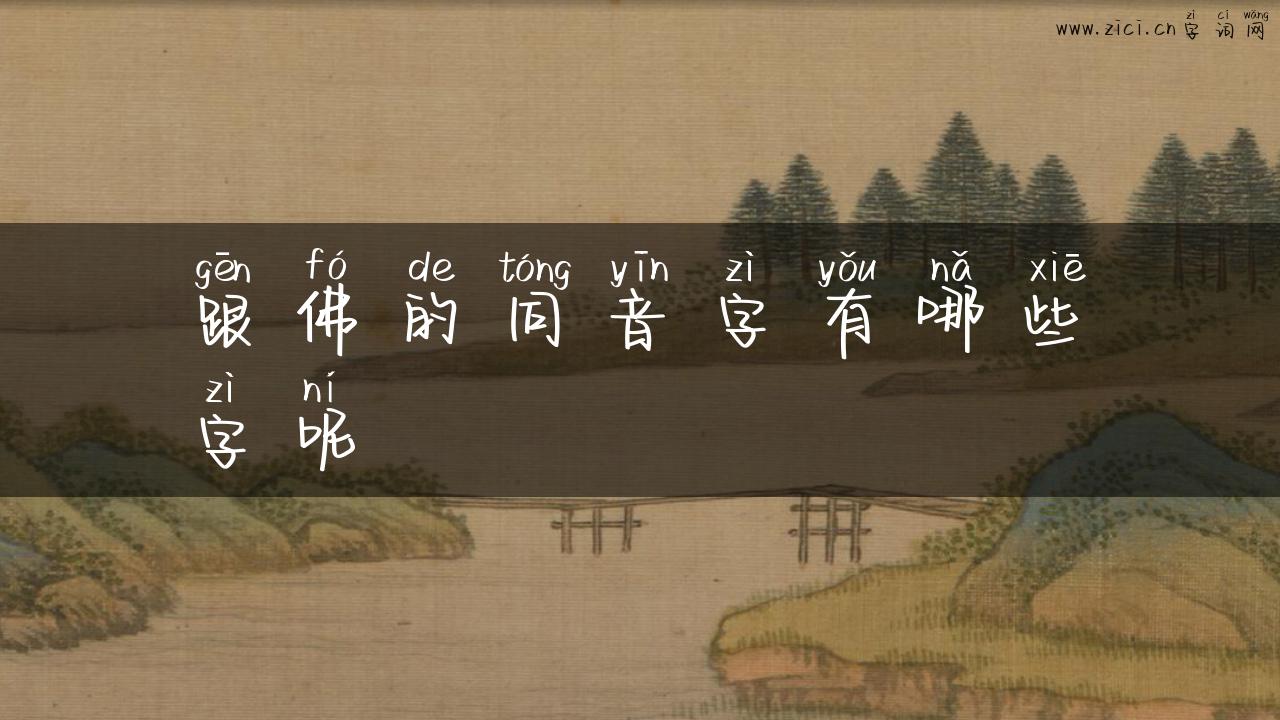 zì cí wǎng
www.zici.cn 字词网
gēn fó de tóng yīn zì yǒu nǎ xiē
跟佛的同音字有哪些
zì ní
字呢